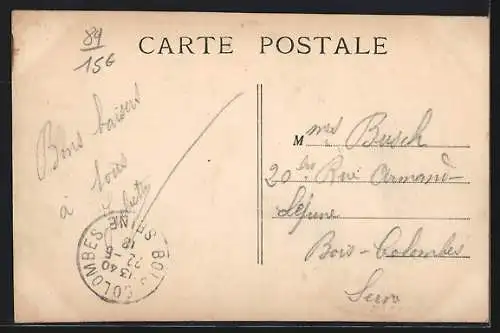 89
156
CARTE POSTALE
Bons baisers
à tous
M mes Busch
20 bis Rue Armand-
Lejeune
Bois-Colombes
Seine
BOIS COLOMBES SEINE
13 40
22 - 6
18